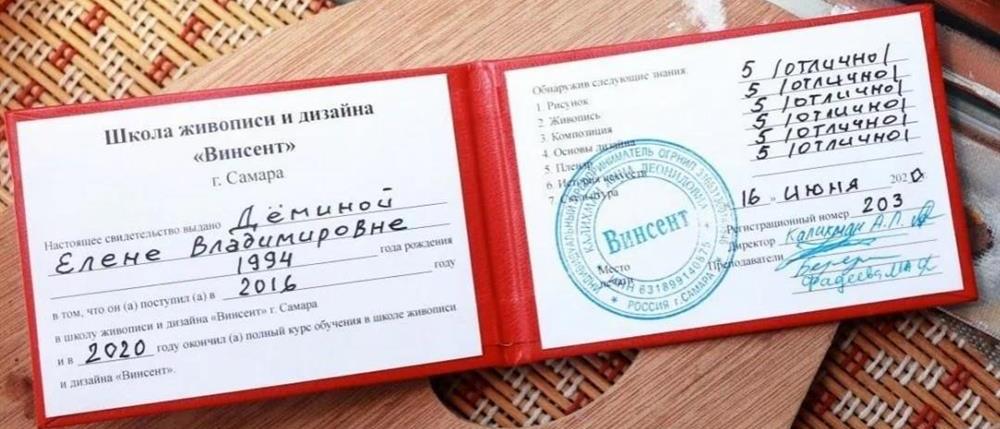 Школа живописи и дизайна
«Винсент»
г. Самара
Настоящее свидетельство выдано Дёминой
Елене Владимировне
1994 года рождения
в том, что он (а) поступил (а) в 2016 году
в школу живописи и дизайна «Винсент» г. Самара
и в 2020 году окончил (а) полный курс обучения в школе живописи
и дизайна «Винсент».
Обнаружив следующие знания
1. Рисунок 5 /отлично/
2. Живопись 5 /отлично/
3. Композиция 5 /отлично/
4. Основы дизайна 5 /отлично/
5. Пленэр 5 /отлично/
6. История искусств 5 /отлично/
7. Скульптура
16 " июня 2020г.
Регистрационный номер 203
Директор Калихман А.Л.
Место печати
Преподаватели
Фадеева
Винсент
ИНДИВИДУАЛЬНЫЙ ПРЕДПРИНИМАТЕЛЬ ОГРНИП
КАЛИХМАН ЛЕОНИДОВНА
ИНН 631899140575
РОССИЯ г.САМАРА